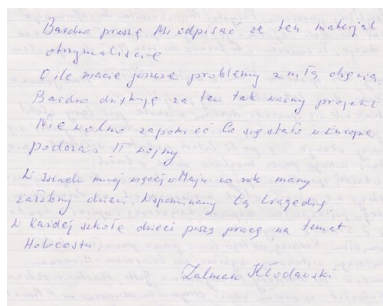 Bardzo proszę mi odpisać że ten materjał
otrzymaliście
O ile macie jeszcze problemy z miłą chęcią.
Bardzo dziękuję za ten tak ważny projekt
Nie wolno zapomnieć Co się stało w Europie
podczas II wojny
mniej więcej w Maju co rok mamy
żałobny dzień. Wspominamy tą tragedię.
W każdej szkole dzieci piszą pracę na temat
Holocostu.
Zalman Kłodawski